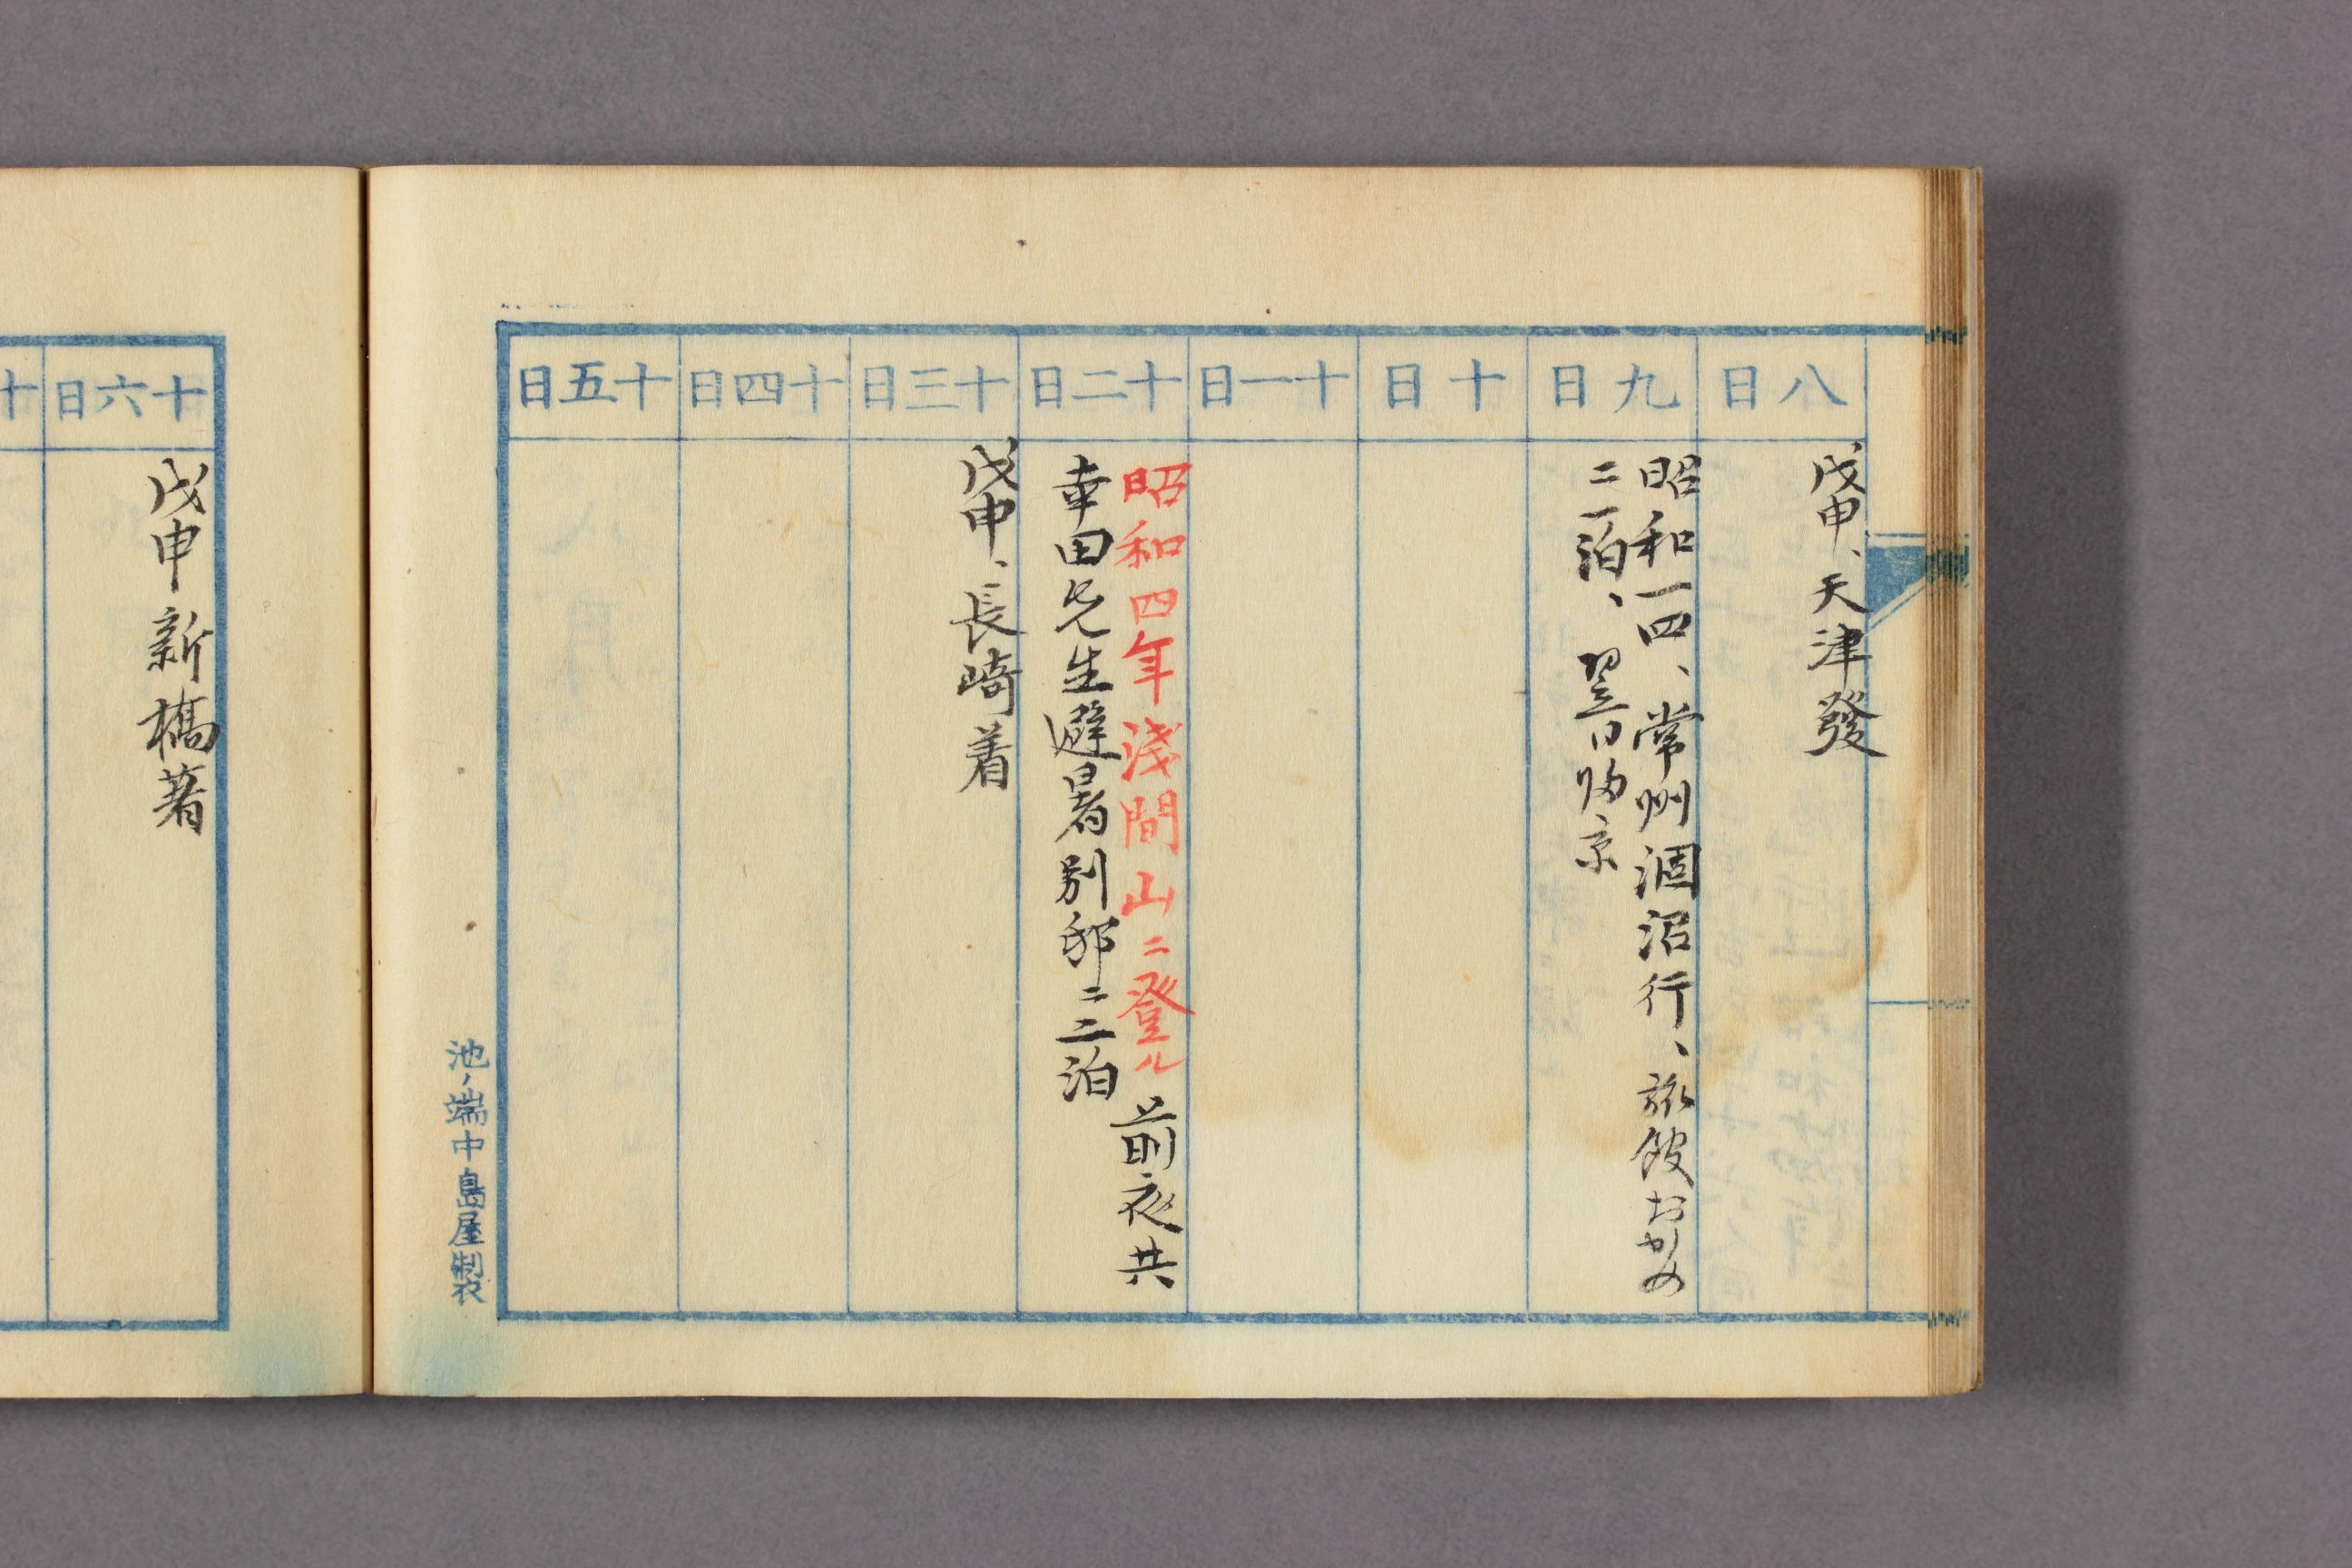 八日
戊申、天津發
九日
昭和一四、常州涸沼行、旅館おかめ
ニ一泊、翌日帰京
十日
十一日
十二日
昭和四年淺間山ニ登ル 前夜共
幸田先生避暑別邸ニ二泊
十三日
戊申、長崎着
十四日
十五日
池ノ端中島屋製
十六日
戊申新橋著
十